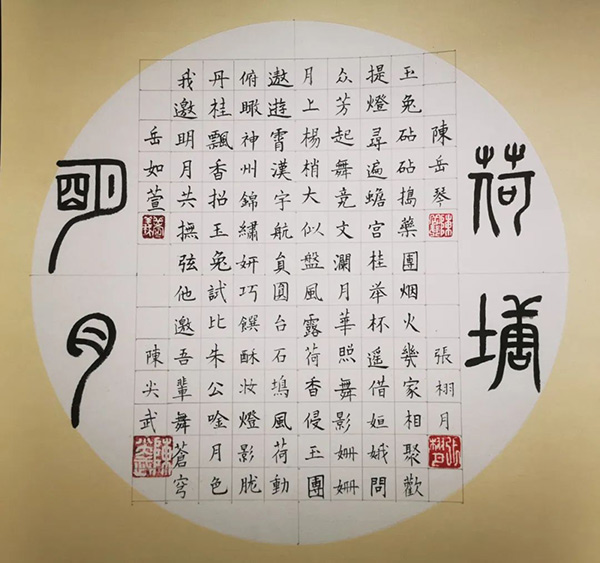 荷塘
陳岳琴
張栩月
玉兔砧砧搗藥團烟火幾家相聚歡
提燈尋遍蟾宫桂举杯遥借姮娥問
众芳起舞竞文瀾月華照舞影姍姍
月上楊梢大似盤風露荷香侵玉團
遨遊霄漢宇航員圓台石塢風荷動
俯瞰神州錦繡妍巧饌酥妝燈影胧
丹桂飄香招玉兔試比朱公唫月色
我邀明月共撫弦他邀吾輩舞蒼穹
岳如萱
陳尖武
明月